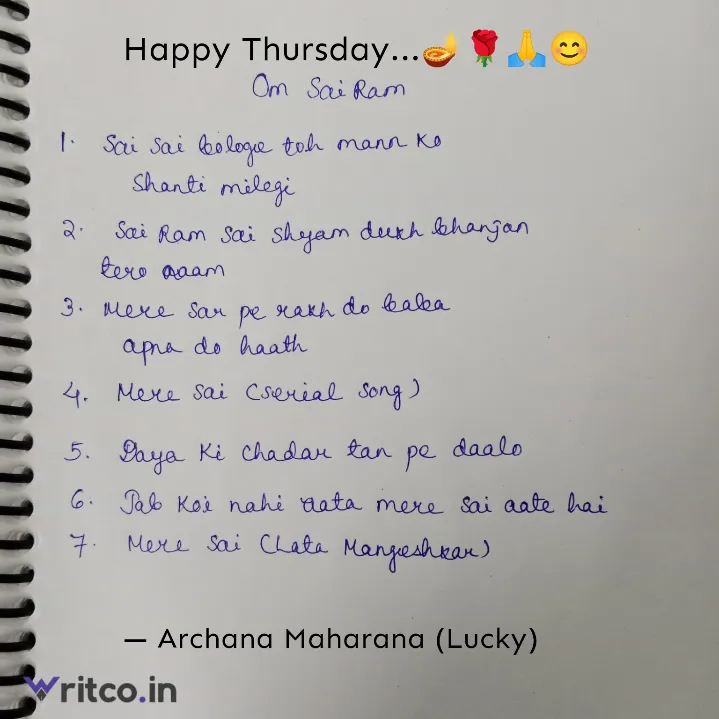 Happy Thursday...🪔🌹🙏😊
Om Sai Ram
1. Sai Sai bologe toh mann ko
Shanti milegi
2. Sai Ram Sai Shyam dukh bhanjan
tero naam
3. Mere Sar pe rakh do baba
apna do haath
4. Mere Sai (serial song)
5. Daya ki chadar tan pe daalo
6. Jab koi nahi aata mere sai aate hai
7. Mere Sai (Lata Mangeshkar)
— Archana Maharana (Lucky)
Writco.in